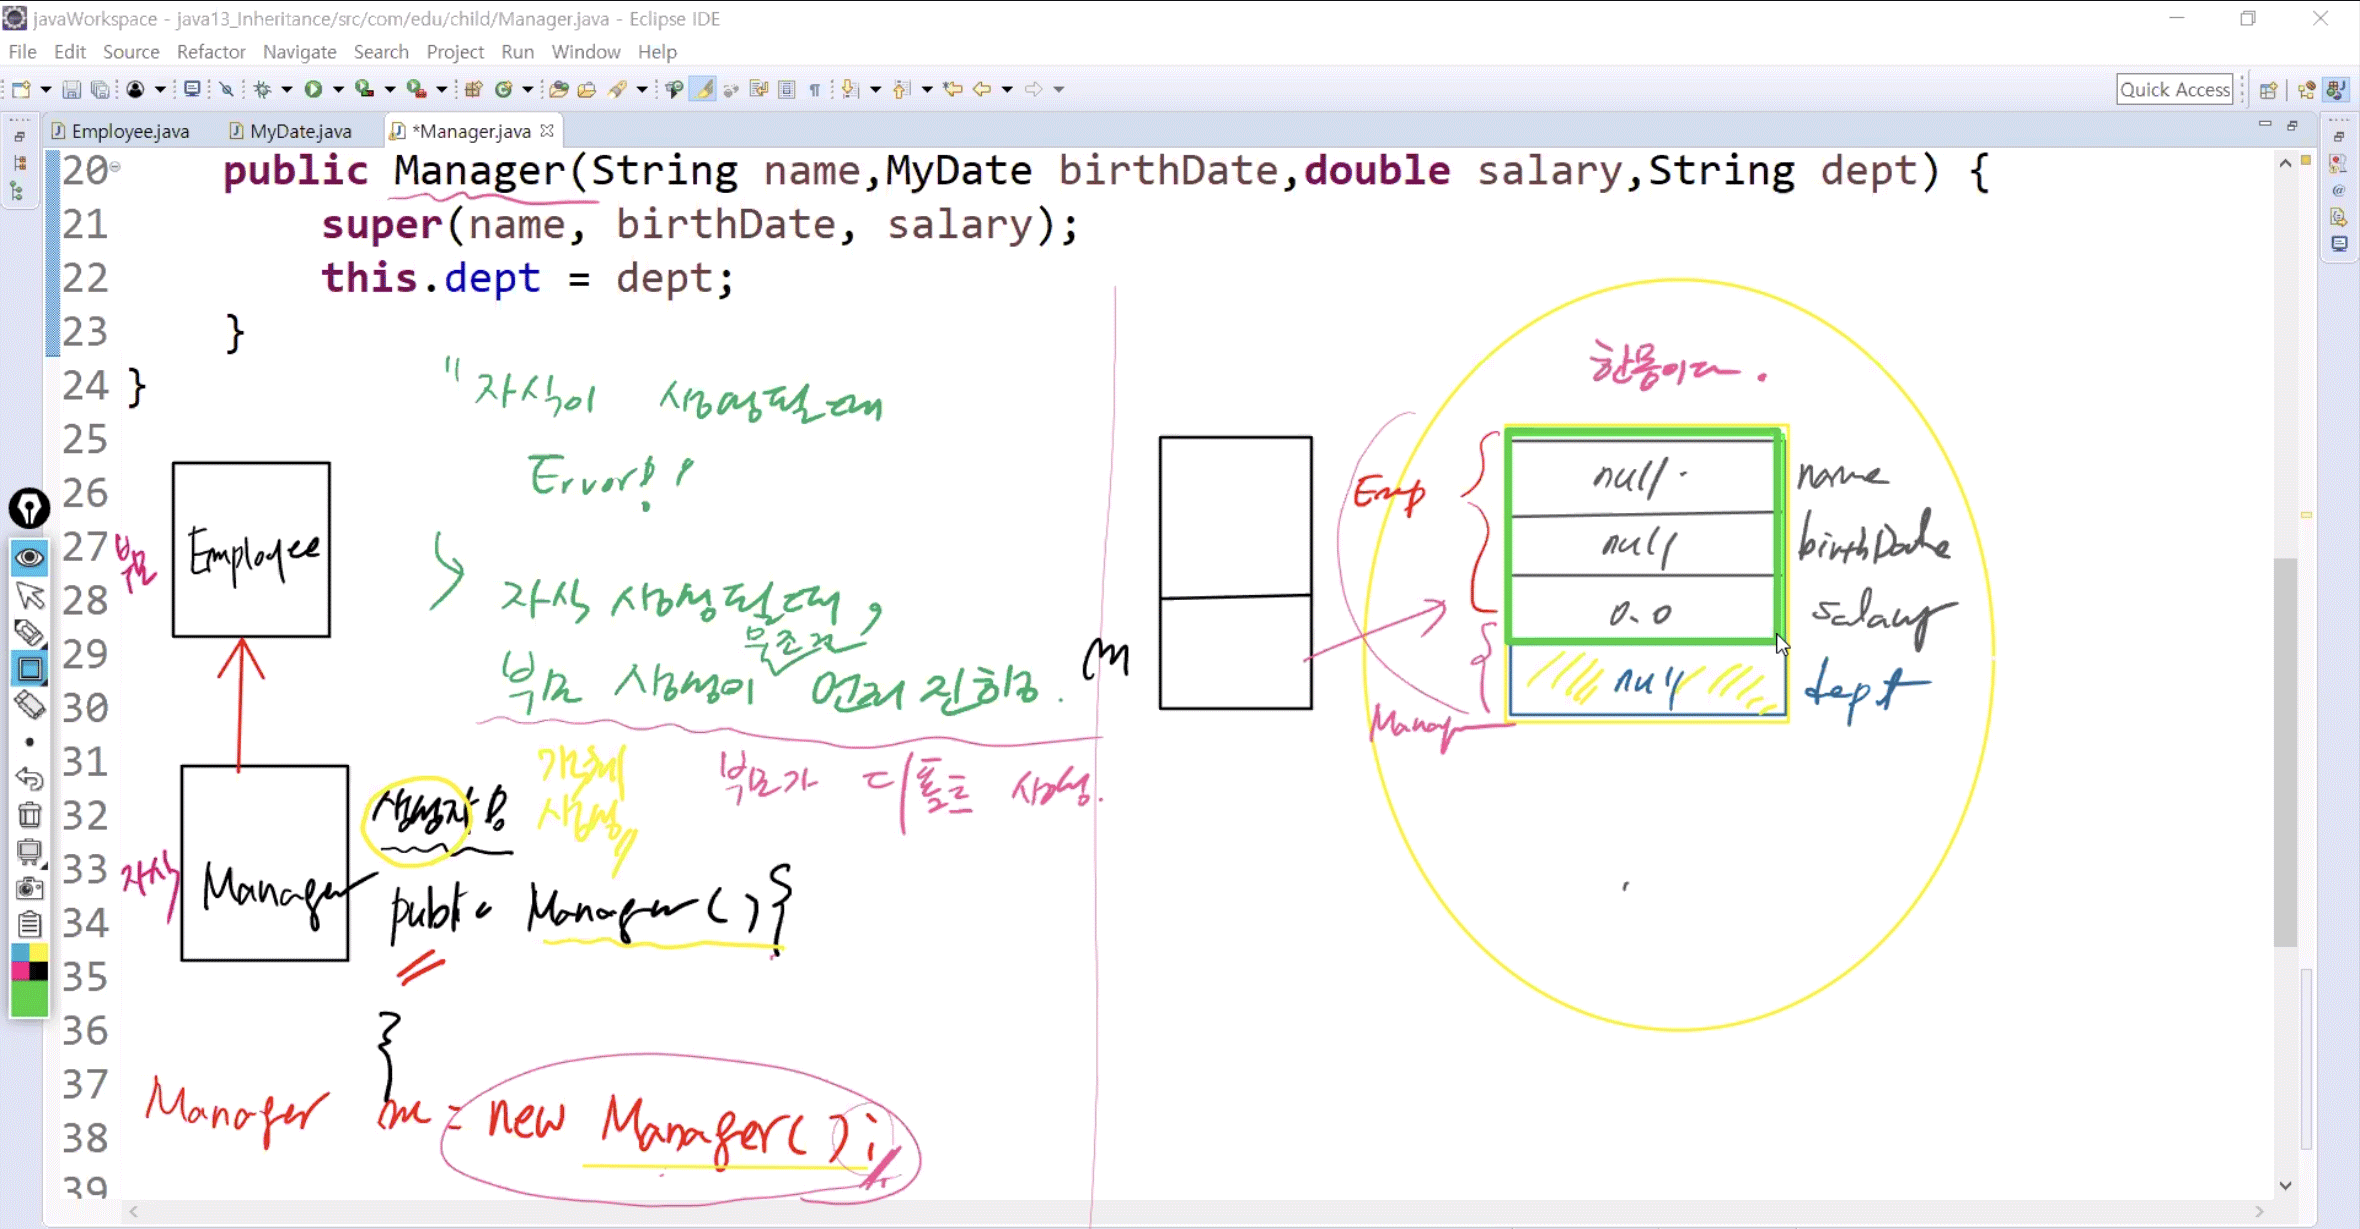 javaWorkspace - java13_Inheritance/src/com/edu/child/Manager.java - Eclipse IDE
File Edit Source Refactor Navigate Search Project Run Window Help
Quick Access
Employee.java MyDate.java *Manager.java
20 public Manager(String name,MyDate birthDate,double salary,String dept) {
21 super(name, birthDate, salary);
22 this.dept = dept;
23 }
24 }
25
26
27
28
29
30
31
32
33
34
35
36
37
38
39
"자식이 생성될때
Error!!
자식 생성될때,
무조건
부모 생성이 먼저 진행.
부모가 디폴트 생성.
객체
생성"
부모
Employee
자식
Manager
생성자!
public Manager(){
}
Manager m = new Manager();
m
한몸이다.
Emp
Manager
null name
null birthDate
0.0 salary
null dept